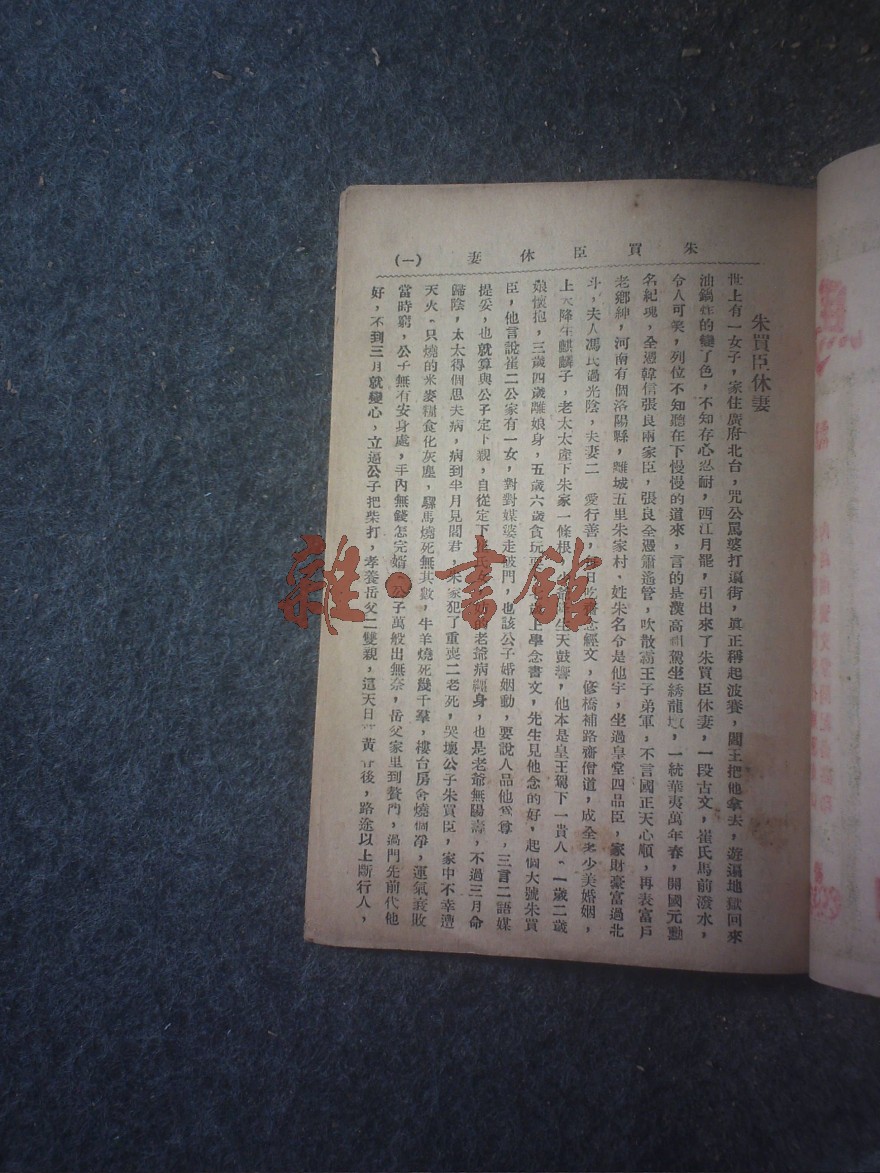 朱買臣休妻 (一)
朱買臣休妻
世上有一女子，家住廣府北台，咒公罵婆打遍街，眞正稱起波賽，閻王把他拿去，遊遍地獄回來
油鍋炸的變了色，不知存心忍耐，西江月罷，引出來了朱買臣休妻，一段古文，崔氏馬前潑水，
令人可笑，列位不知聽在下慢慢的道來，言的是漢高祖駕坐綉龍墩，一統華夷萬年春，開國元勳
名紀魂，全憑韓信張良兩家臣，張良全憑簫遙管，吹散霸王子弟軍，不言國正天心順，再表富戶
老鄉紳，河南有個洛陽縣，離城五里朱家村、姓朱名令是他宇，坐過皇堂四品臣，家財豪富過北
斗，夫人馮氏過光陰，夫妻二 愛行善，每日吃齋念經文，修橋補路齋僧道，成全老少美婚姻，
上天降生麒麟子，老太太產下朱家一條根， 生天鼓響，他本是皇王駕下一貴人、一歲二歲
娘懷抱，三歲四歲離娘身，五歲六歲貪玩耍， 上學念書文，先生見他念的好，起個大號朱買
臣，他言說崔二公家有一女，對對媒婆走破門，也該公子婚姻動，要說人品他爲尊，三言二語媒
提妥，也就算與公子定下親，自從定下崔氏女， 的老爺病纏身，也是老爺無陽壽，不過三月命
歸陰，太太得個思夫病，病到半月見閻君，朱家犯了重喪二老死，哭壞公子朱買臣，家中不幸遭
天火、只燒的米麥糧食化灰塵，騾馬燒死無其數，牛羊燒死幾千羣，樓台房舍燒個凈，運氣衰敗
當時窮，公子無有安身處，手內無錢怎完婚，公子萬般出無奈，岳父家里到贅門，過門先前代他
好，不到三月就變心，立逼公子把柴打，孝養岳父二雙親，這天日 黃 後，路途以上斷行人，
雜·書館